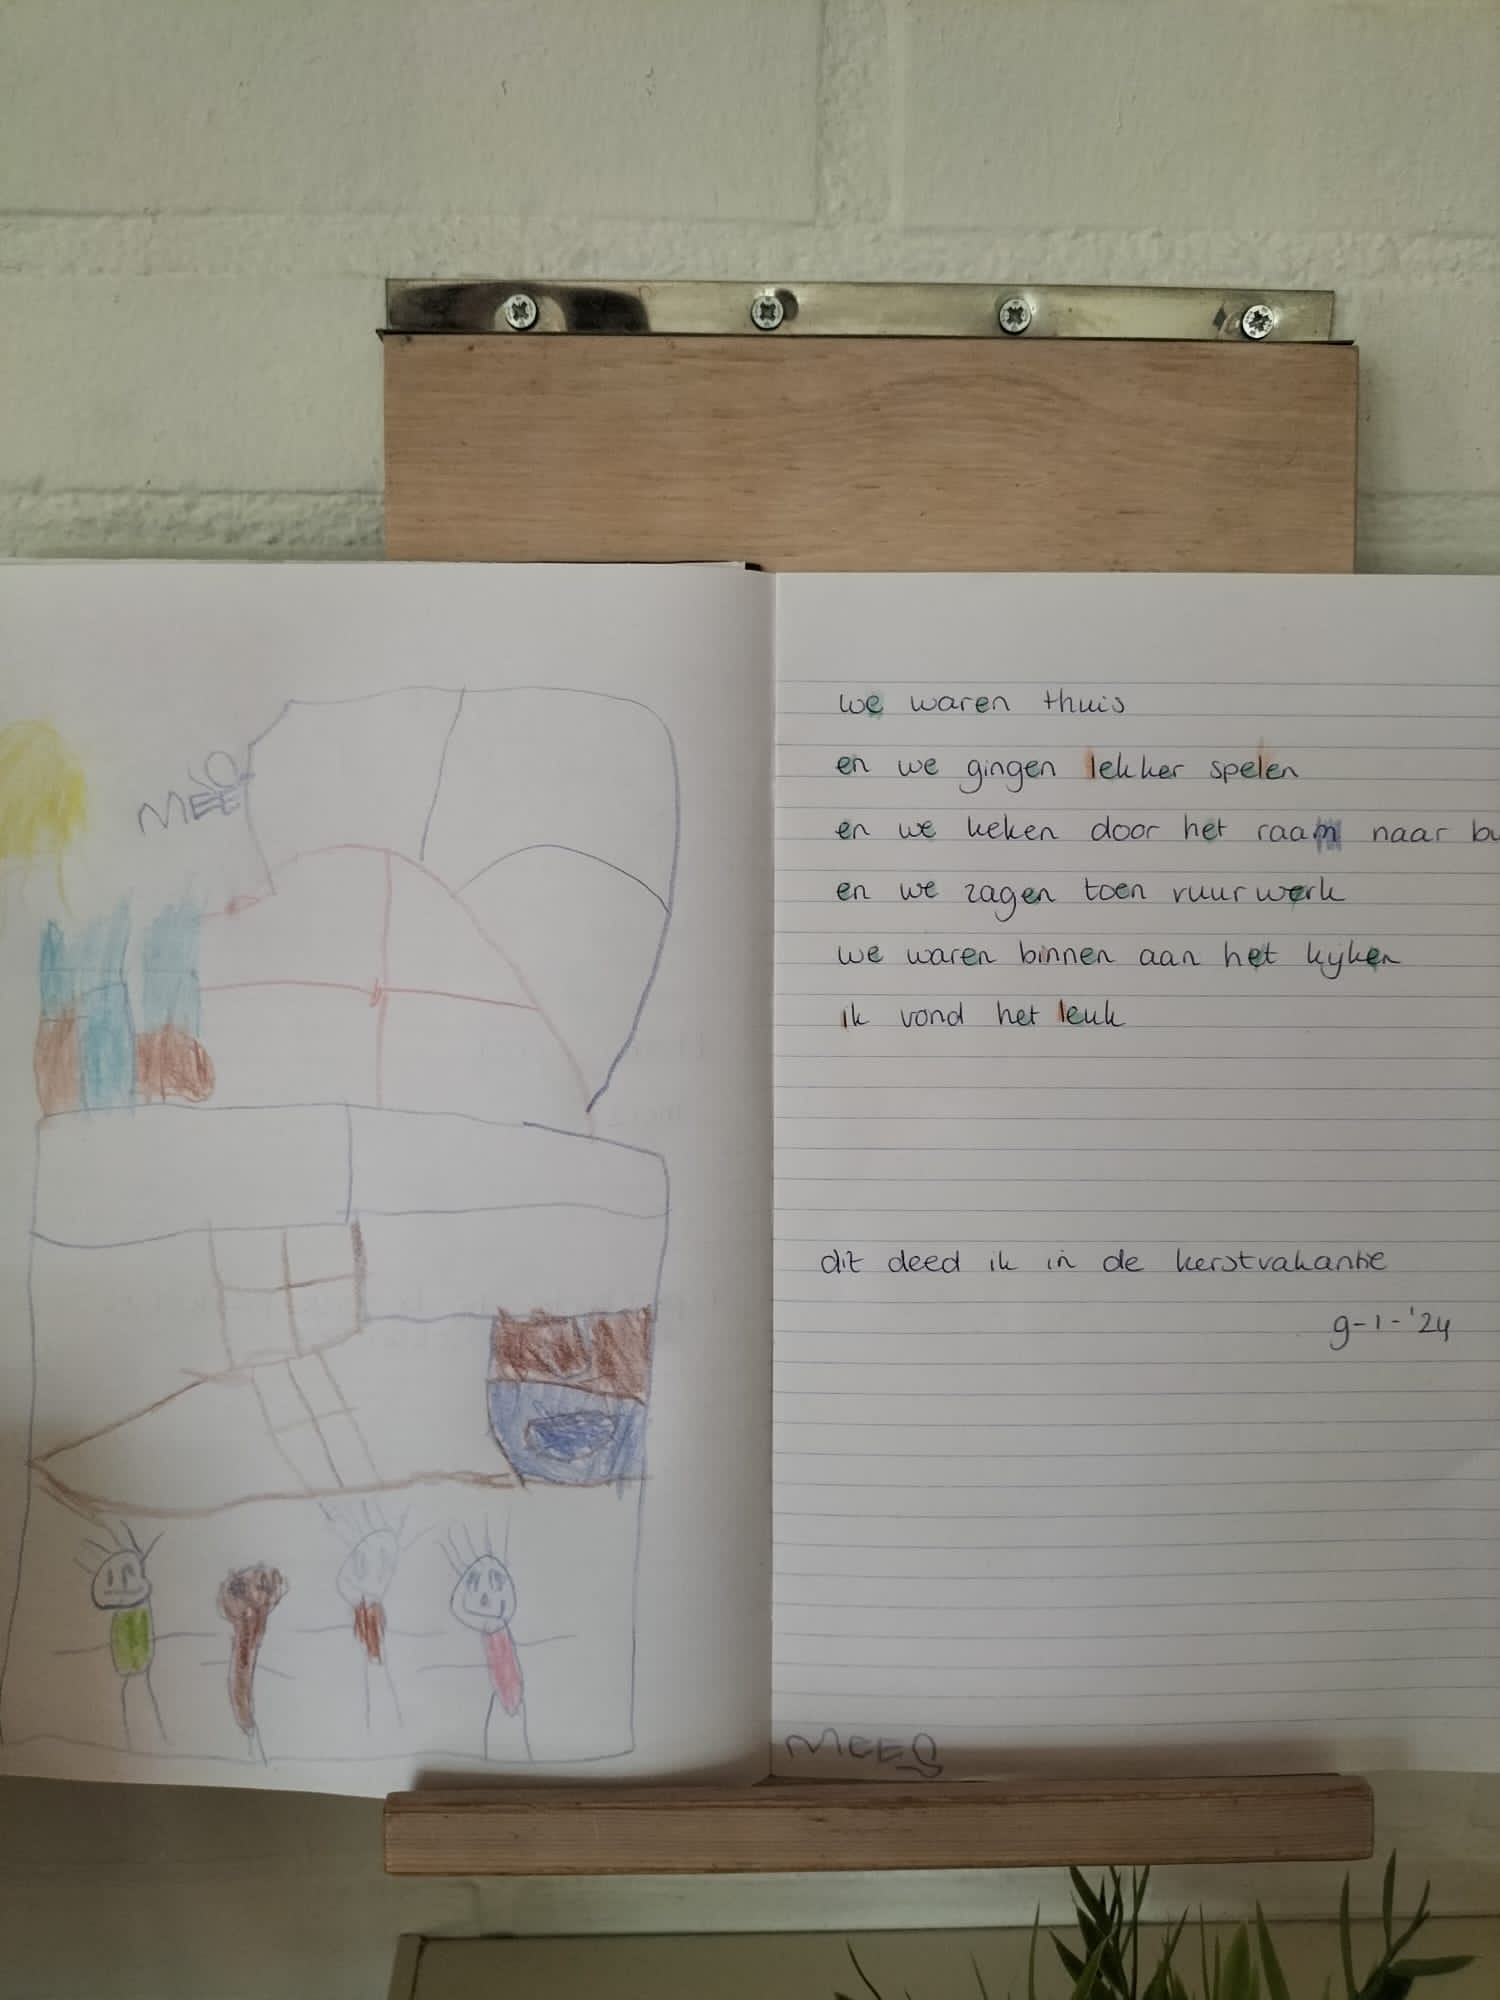 MEES
we waren thuis
en we gingen lekker spelen
en we keken door het raam naar bu
en we zagen toen vuurwerk
we waren binnen aan het kijken
ik vond het leuk
dit deed ik in de kerstvakantie
9-1-'24
MEES